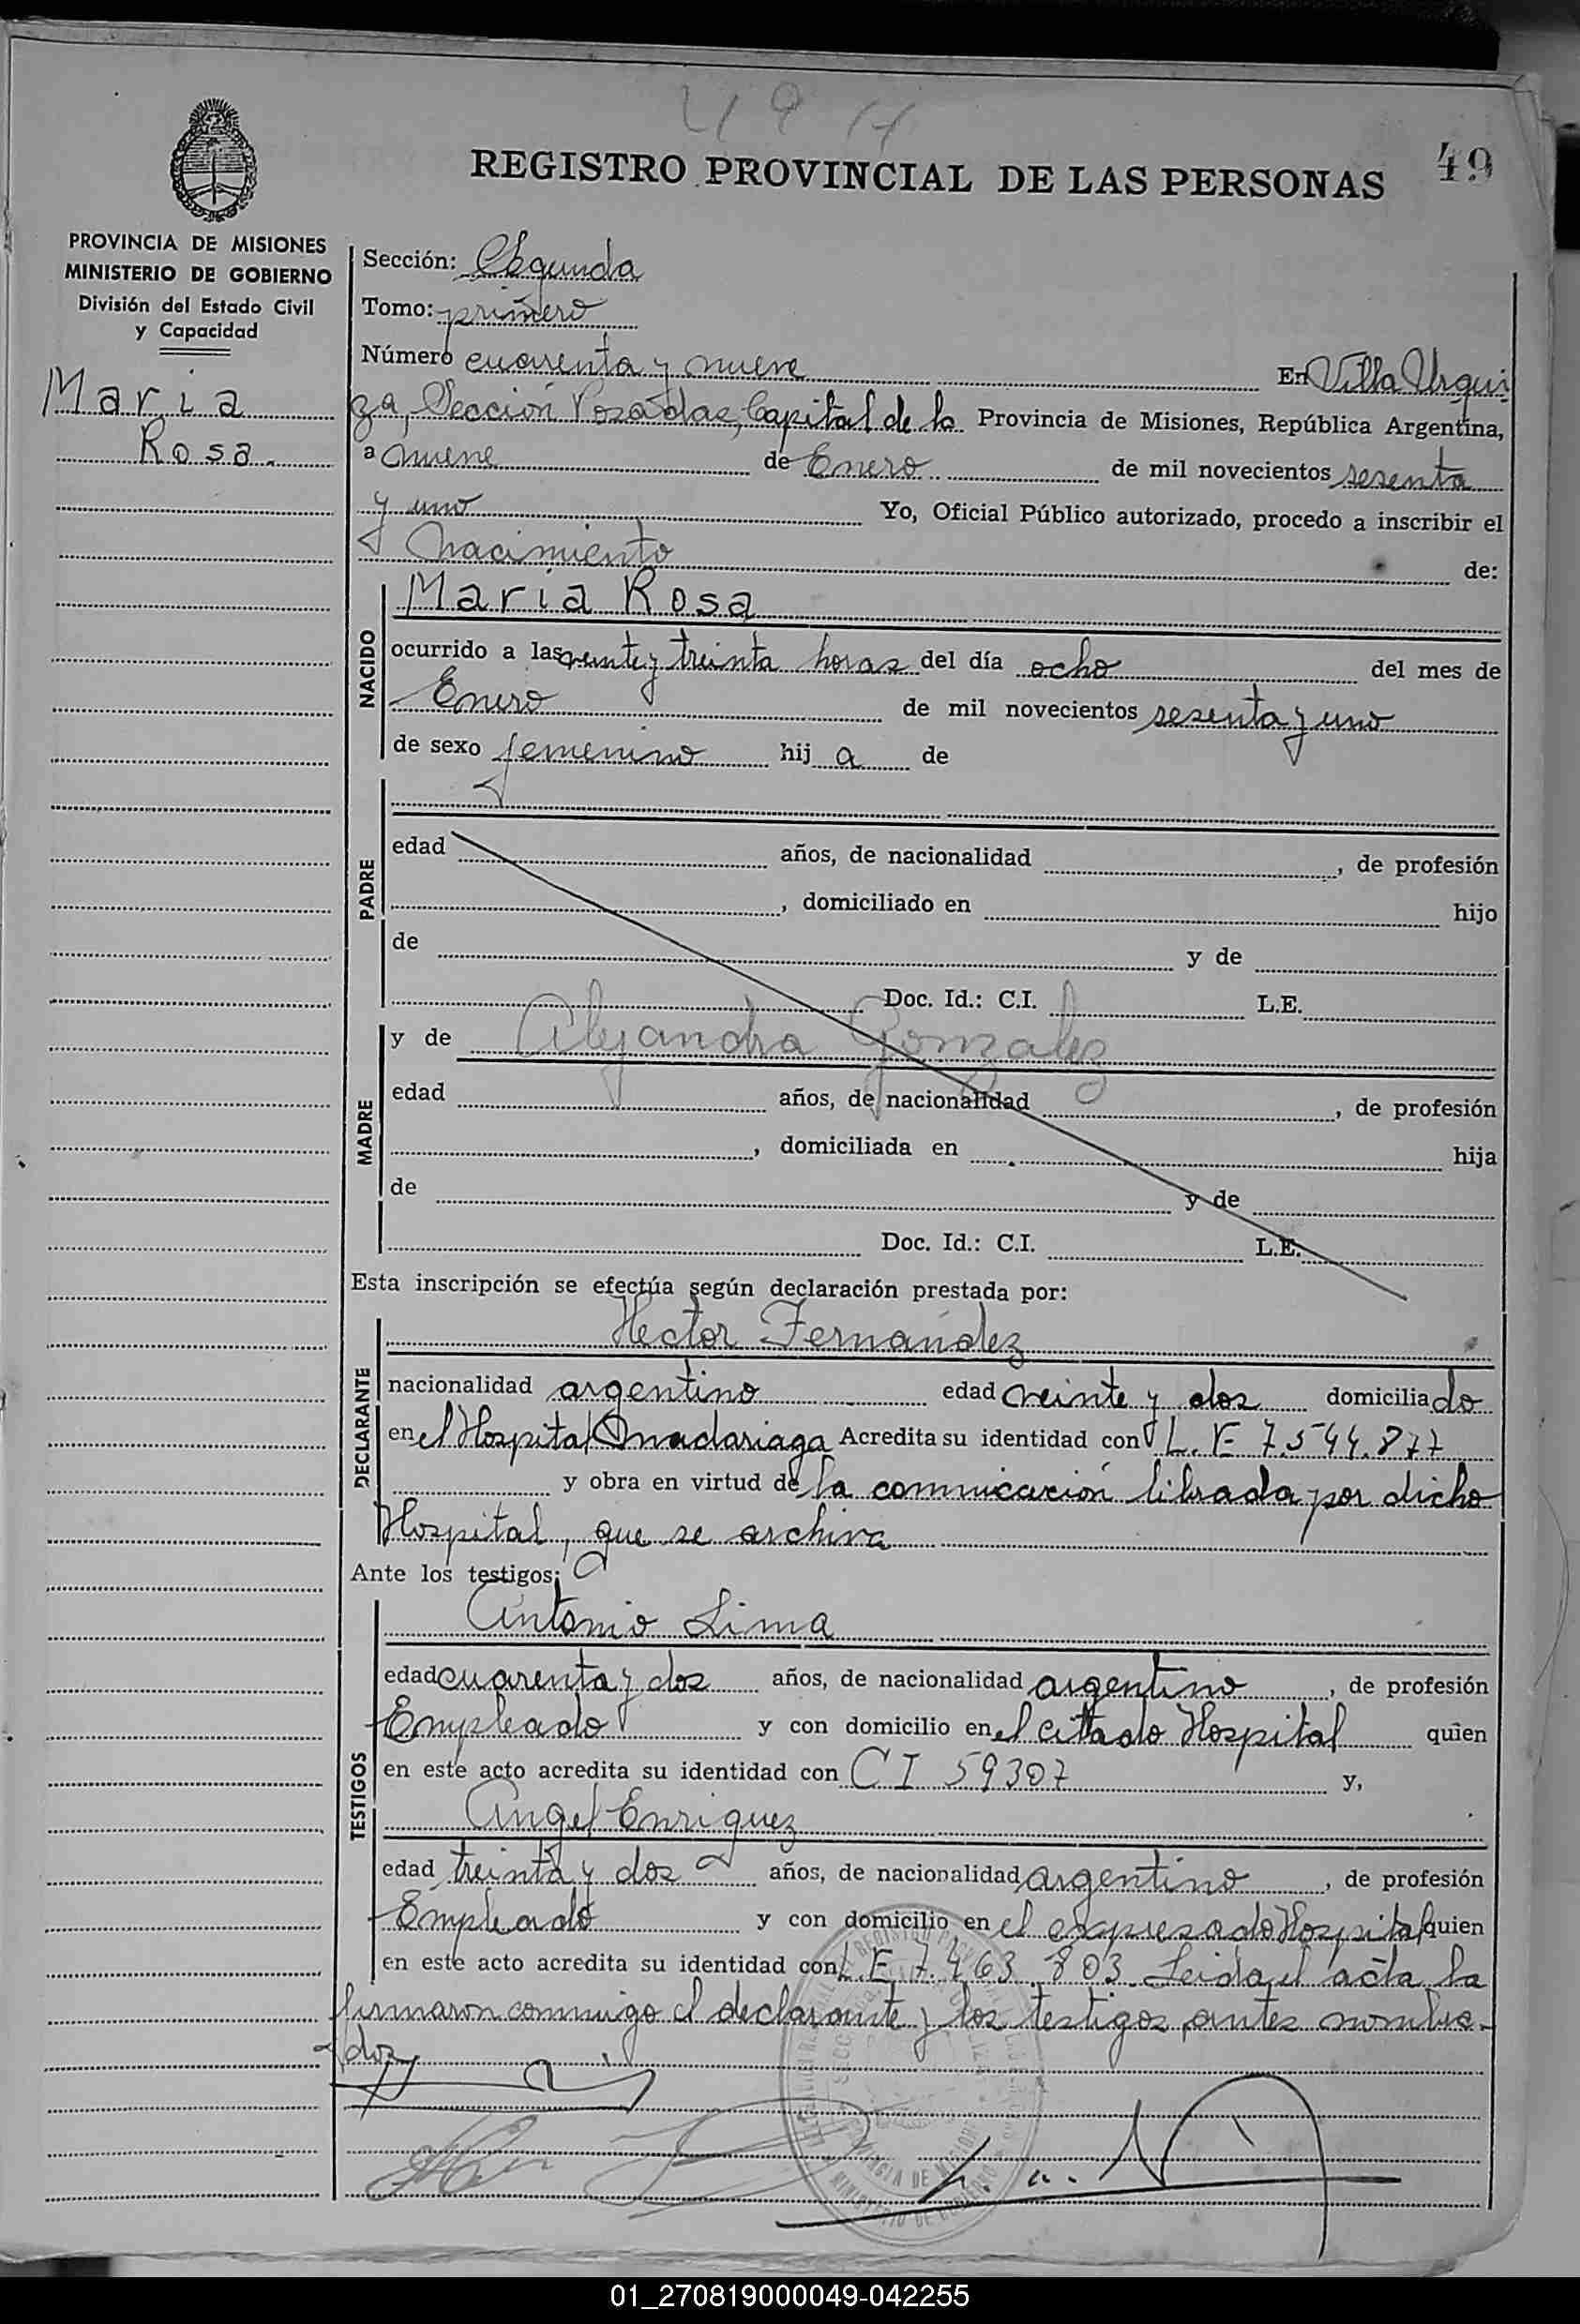 49 H
REGISTRO PROVINCIAL DE LAS PERSONAS
49
PROVINCIA DE MISIONES
MINISTERIO DE GOBIERNO
División del Estado Civil
y Capacidad
Maria
Rosa.
Sección: Segunda
Tomo: primero
Número cuarenta y nueve En Villa Urqui
za, Sección Posadas, Capital de la Provincia de Misiones, República Argentina,
a nueve de Enero de mil novecientos sesenta
y uno Yo, Oficial Público autorizado, procedo a inscribir el
Nacimiento de:
NACIDO
Maria Rosa
ocurrido a las veinte y treinta horas del día ocho del mes de
Enero de mil novecientos sesenta y uno
de sexo femenino hij a de
PADRE
edad años, de nacionalidad , de profesión
, domiciliado en hijo
de y de
Doc. Id.: C.I. L.E.
MADRE
y de Alejandra Gonzalez
edad años, de nacionalidad , de profesión
, domiciliada en hija
de y de
Doc. Id.: C.I. L.E.
Esta inscripción se efectúa según declaración prestada por:
DECLARANTE
Hector Fernandez
nacionalidad argentino edad veinte y dos domiciliado
en el Hospital Madariaga Acredita su identidad con L. E 7.544.877
y obra en virtud de la comunicación librada por dicho
Hospital, que se archiva
Ante los testigos:
TESTIGOS
Antonio Lima
edad cuarenta y dos años, de nacionalidad argentino, de profesión
Empleado y con domicilio en el citado Hospital quien
en este acto acredita su identidad con C I 59307 y,
Angel Enriquez
edad treinta y dos años, de nacionalidad argentino, de profesión
Empleado y con domicilio en el expresado Hospital quien
en este acto acredita su identidad con L. E 7.463.803. Leida el acta la
firmaron conmigo el declarante y los testigos antes nombra-
dos
01_270819000049-042255